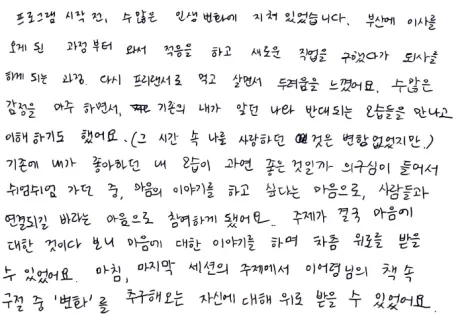 프로그램 시작 전, 수많은 인생 변화에 지쳐 있었습니다. 부산에 이사를
오게 된 과정부터 와서 적응을 하고 새로운 직업을 구했다가 퇴사를
하게 되는 과정. 다시 프리랜서로 먹고 살면서 두려움을 느꼈어요. 수많은
감정을 마주 하면서, 기존의 내가 알던 나와 반대되는 모습들을 만나고
이해하기도 했어요. (그 시간 속 나를 사랑하던 것은 변함 없었지만.)
기존에 내가 좋아하던 내 모습이 과연 좋은 것일까 의구심이 들어서
쉬엄쉬엄 가던 중, 마음의 이야기를 하고 싶다는 마음으로, 사람들과
연결되길 바라는 마음으로 참여하게 됐어요. 주제가 결국 마음에
대한 것이다 보니 마음에 대한 이야기를 하며 차츰 위로를 받을
수 있었어요. 마침, 마지막 세션의 주제에서 이어령님의 책 속
구절 중 '변화'를 추구해오는 자신에 대해 위로 받을 수 있었어요.